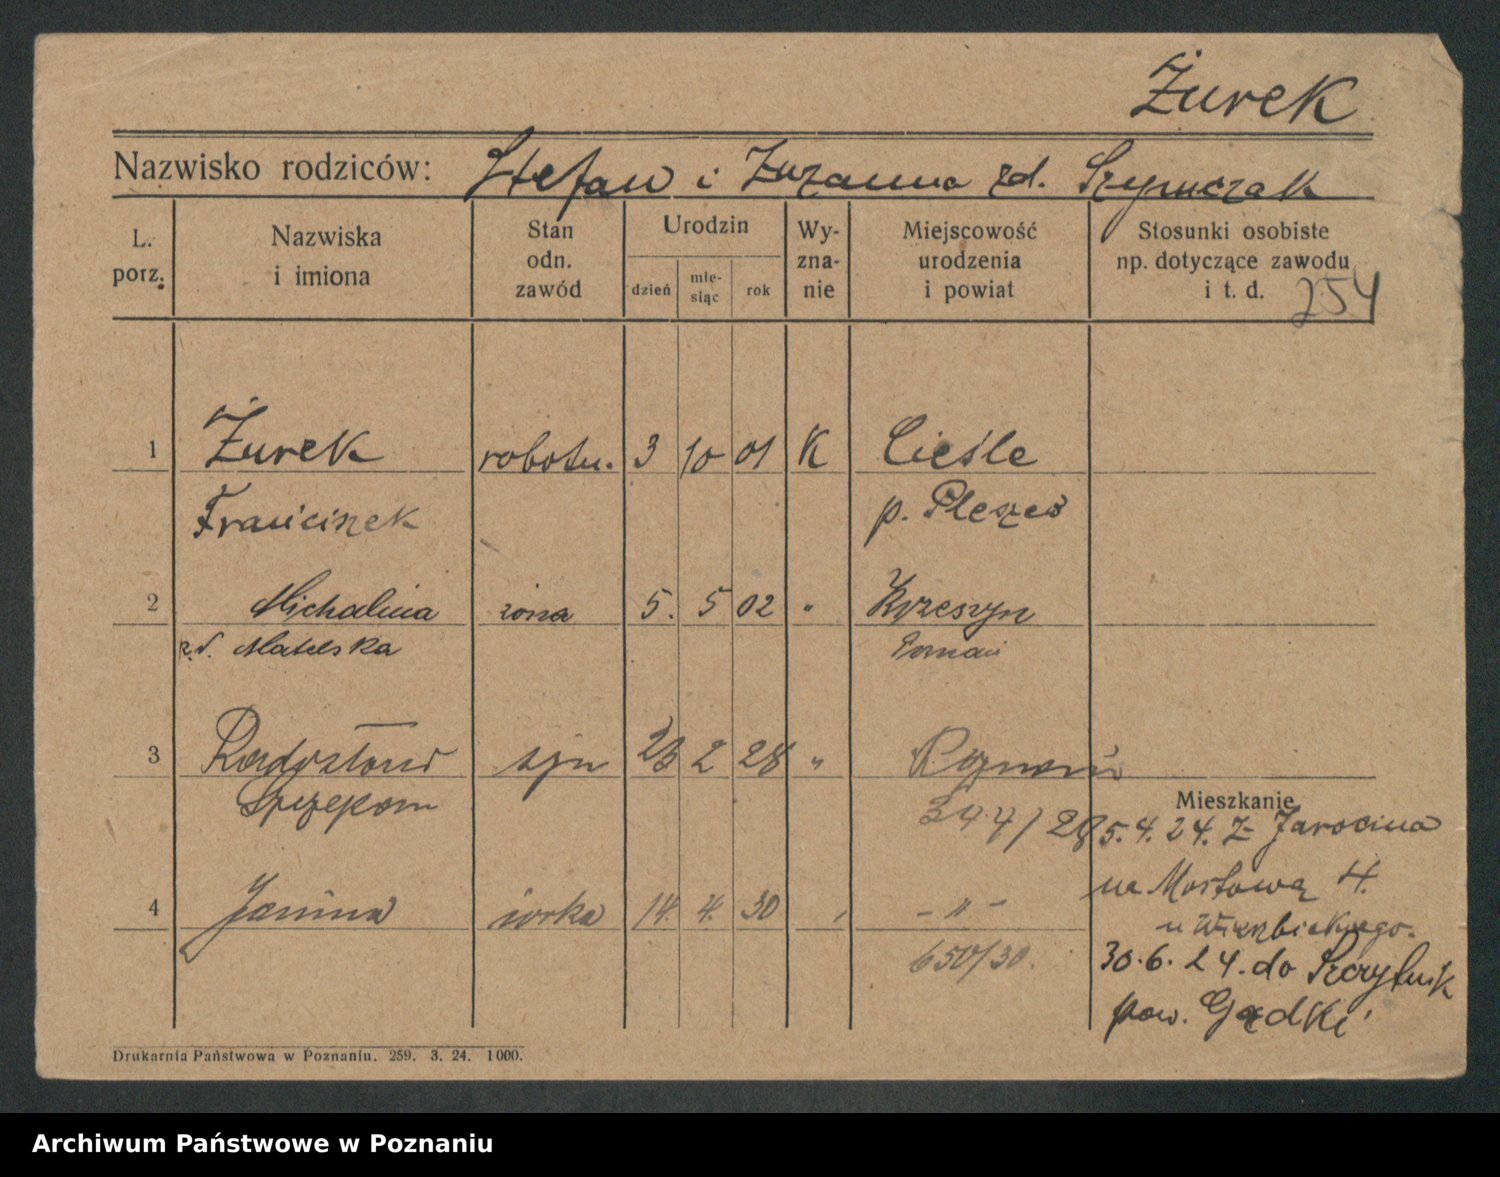 Żurek
Nazwisko rodziców: Stefan i Zuzanna zd. Szymczak
L. porz.
Nazwiska i imiona
Stan odn. zawód
Urodzin
dzień
mie-siąc
rok
Wy-zna-nie
Miejscowość urodzenia i powiat
Stosunki osobiste np. dotyczące zawodu i t. d.
254
1 Żurek robotn. 3 10 01 K Cieśle
Franciszek p. Pleszew
2 Michalina żona 5. 5 02 " Krzeszyn
z.d. Matelska
3 syn 23 2 28 " Poznań
Szczepan 344/28
Mieszkanie
5.4.24. z Jarocina
na Mostową 4.
4 Janina córka 14. 4. 30 " - " -
u Wierzbickiego.
650/30.
30.6.24. do
pow. Gądki
Drukarnia Państwowa w Poznaniu. 259. 3. 24. 1000.
Archiwum Państwowe w Poznaniu